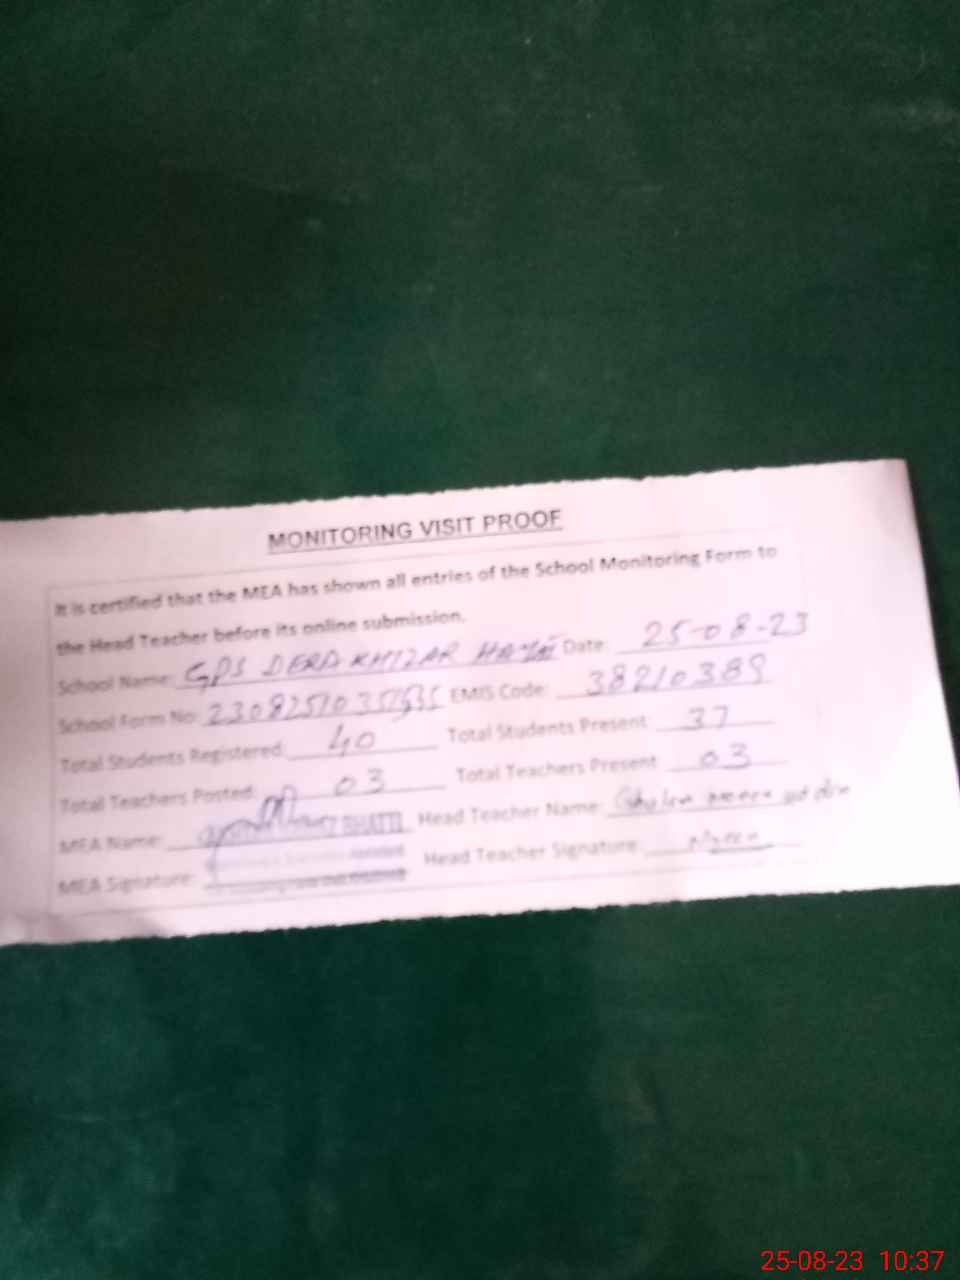 MONITORING VISIT PROOF
It is certified that the MEA has shown all entries of the School Monitoring Form to
the Head Teacher before its online submission.
School Name: GPS DERA KHIZAR Date: 25-08-23
School Form No: EMIS Code: 38210389
Total Students Registered: 40 Total Students Present: 37
Total Teachers Posted: 03 Total Teachers Present: 03
MEA Name: BHATTI Head Teacher Name:
MEA Signature: Head Teacher Signature:
25-08-23 10:37